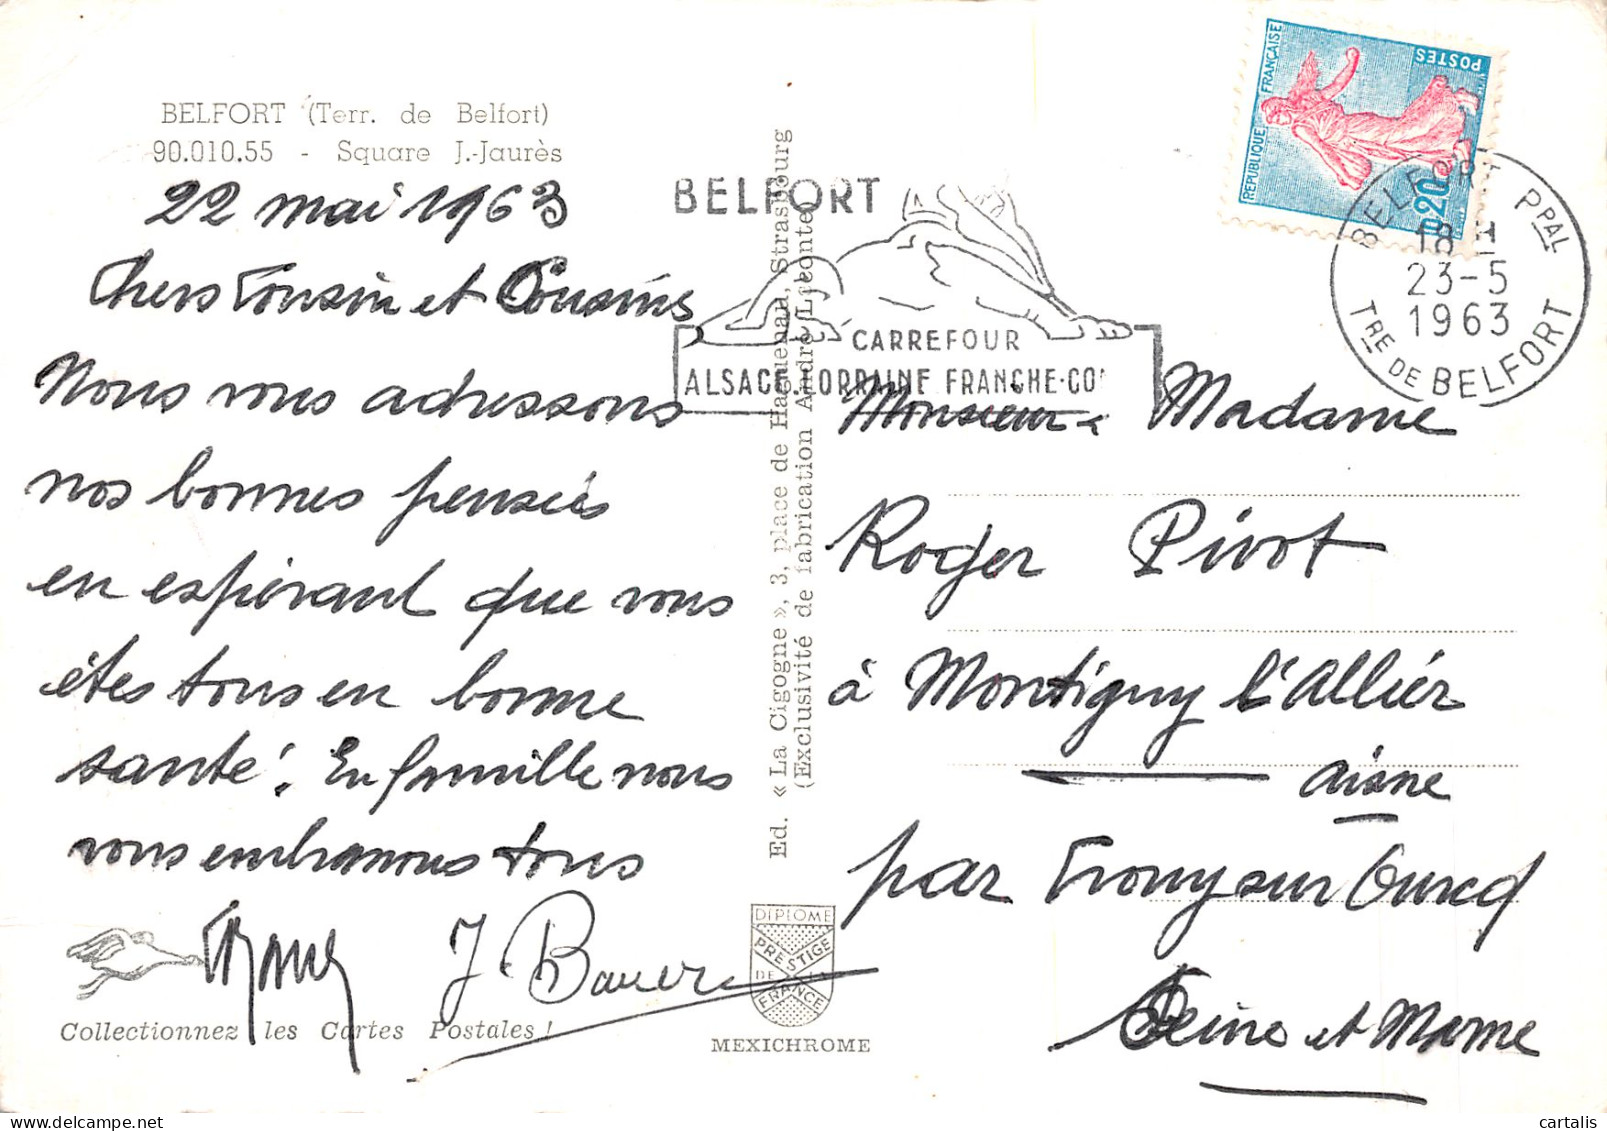 BELFORT (Terr. de Belfort)
90.010.55 - Square J.-Jaurès
22 mai 1963
Chers Cousin et Cousine
Nous vous adressons
nos bonnes pensées
en espérant que vous
êtes tous en bonne
santé. En famille nous
vous embrassons tous
J Bauer
Collectionnez les Cartes Postales !
Ed. « La Cigogne », 3, place de Haguenau, Strasbourg
(Exclusivité de fabrication André Leconte)
DIPLOME
PRESTIGE
DE LA
FRANCE
MEXICHROME
BELFORT
CARREFOUR
ALSACE.LORRAINE FRANCHE-CO
REPUBLIQUE FRANÇAISE
POSTES
0,20
BELFORT PPAL
18 H
23-5
1963
TRE DE BELFORT
Monsieur & Madame
Roger Pivot
à Montigny l'Allier
Aisne
par Crouy sur Ourcq
Seine et Marne
cartalis